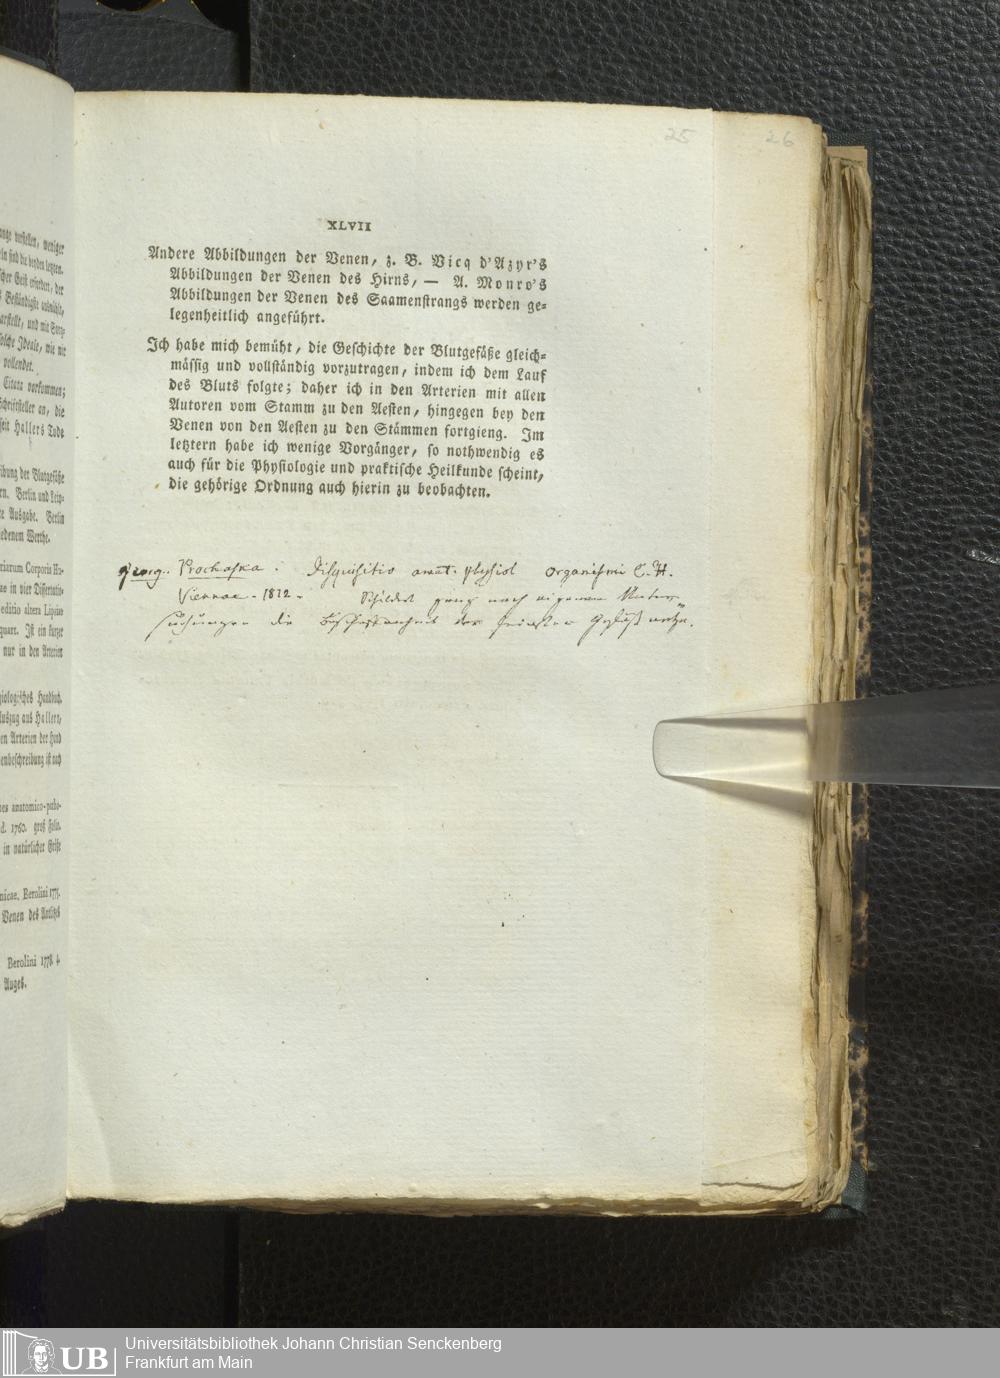 25
26
XLVII
Andere Abbildungen der Venen, z. B. Vicq d'Azyr's
Abbildungen der Venen des Hirns, — A. Monro's
Abbildungen der Venen des Saamenstrangs werden ge-
legenheitlich angeführt.
Ich habe mich bemüht, die Geschichte der Blutgefäße gleich-
mässig und vollständig vorzutragen, indem ich dem Lauf
des Bluts folgte; daher ich in den Arterien mit allen
Autoren vom Stamm zu den Aesten, hingegen bey den
Venen von den Aesten zu den Stämmen fortgieng. Im
letztern habe ich wenige Vorgänger, so nothwendig es
auch für die Physiologie und praktische Heilkunde scheint,
die gehörige Ordnung auch hierin zu beobachten.
Georg. Prochaska. Disquisitio anat. physiol organismi C. H.
Viennae. 1812. Schildert ganz nach eigenen Unter-
suchungen die Beschaffenheit der feinsten Gefäß netze.
ange vorstellen, weniger
ln sind die beyden letzten.
scher Geist erfordert, der
vollendet.
Citata vorkommen;
Schriftsteller an, die
seit Hallers Tode
ibung der Blutgefäße
rn. Berlin und Leip-
te Ausgabe. Berlin
edenem Werthe.
riarum Corporis Hu-
ae in vier Dissertatio-
editio altera Lipsiae
quart. Ist ein kurzer
nur in den Arterien
siologisches Handbuch.
Auszug aus Hallers,
en Arterien der Hand
enbeschreibung ist nach
nes anatomico-patho-
d. 1760. groß Folio.
in natürlicher Größe
nicae. Berolini 177.
Venen des Antlitzes
Berolini 1778 4
Auges.
UB
Universitätsbibliothek Johann Christian Senckenberg
Frankfurt am Main